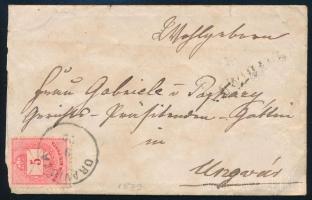 Wohlgeboren
Frau Gabriele v
Gerichts-Präsidenten-Gattin
in
Ungvár
5
ORAVICZA
1879